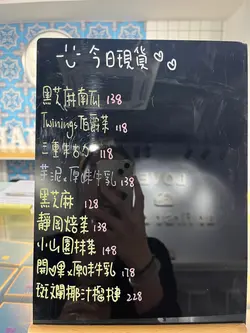 今日現貨♡♡
黑芝麻南瓜 138
Twinings伯爵茶 118
三重朱古力 118
芋泥x原味牛乳 138
黑芝麻 128
靜岡焙茶 138
小山園抹茶 148
開心果x原味牛乳 178
斑斕椰汁極撻 228